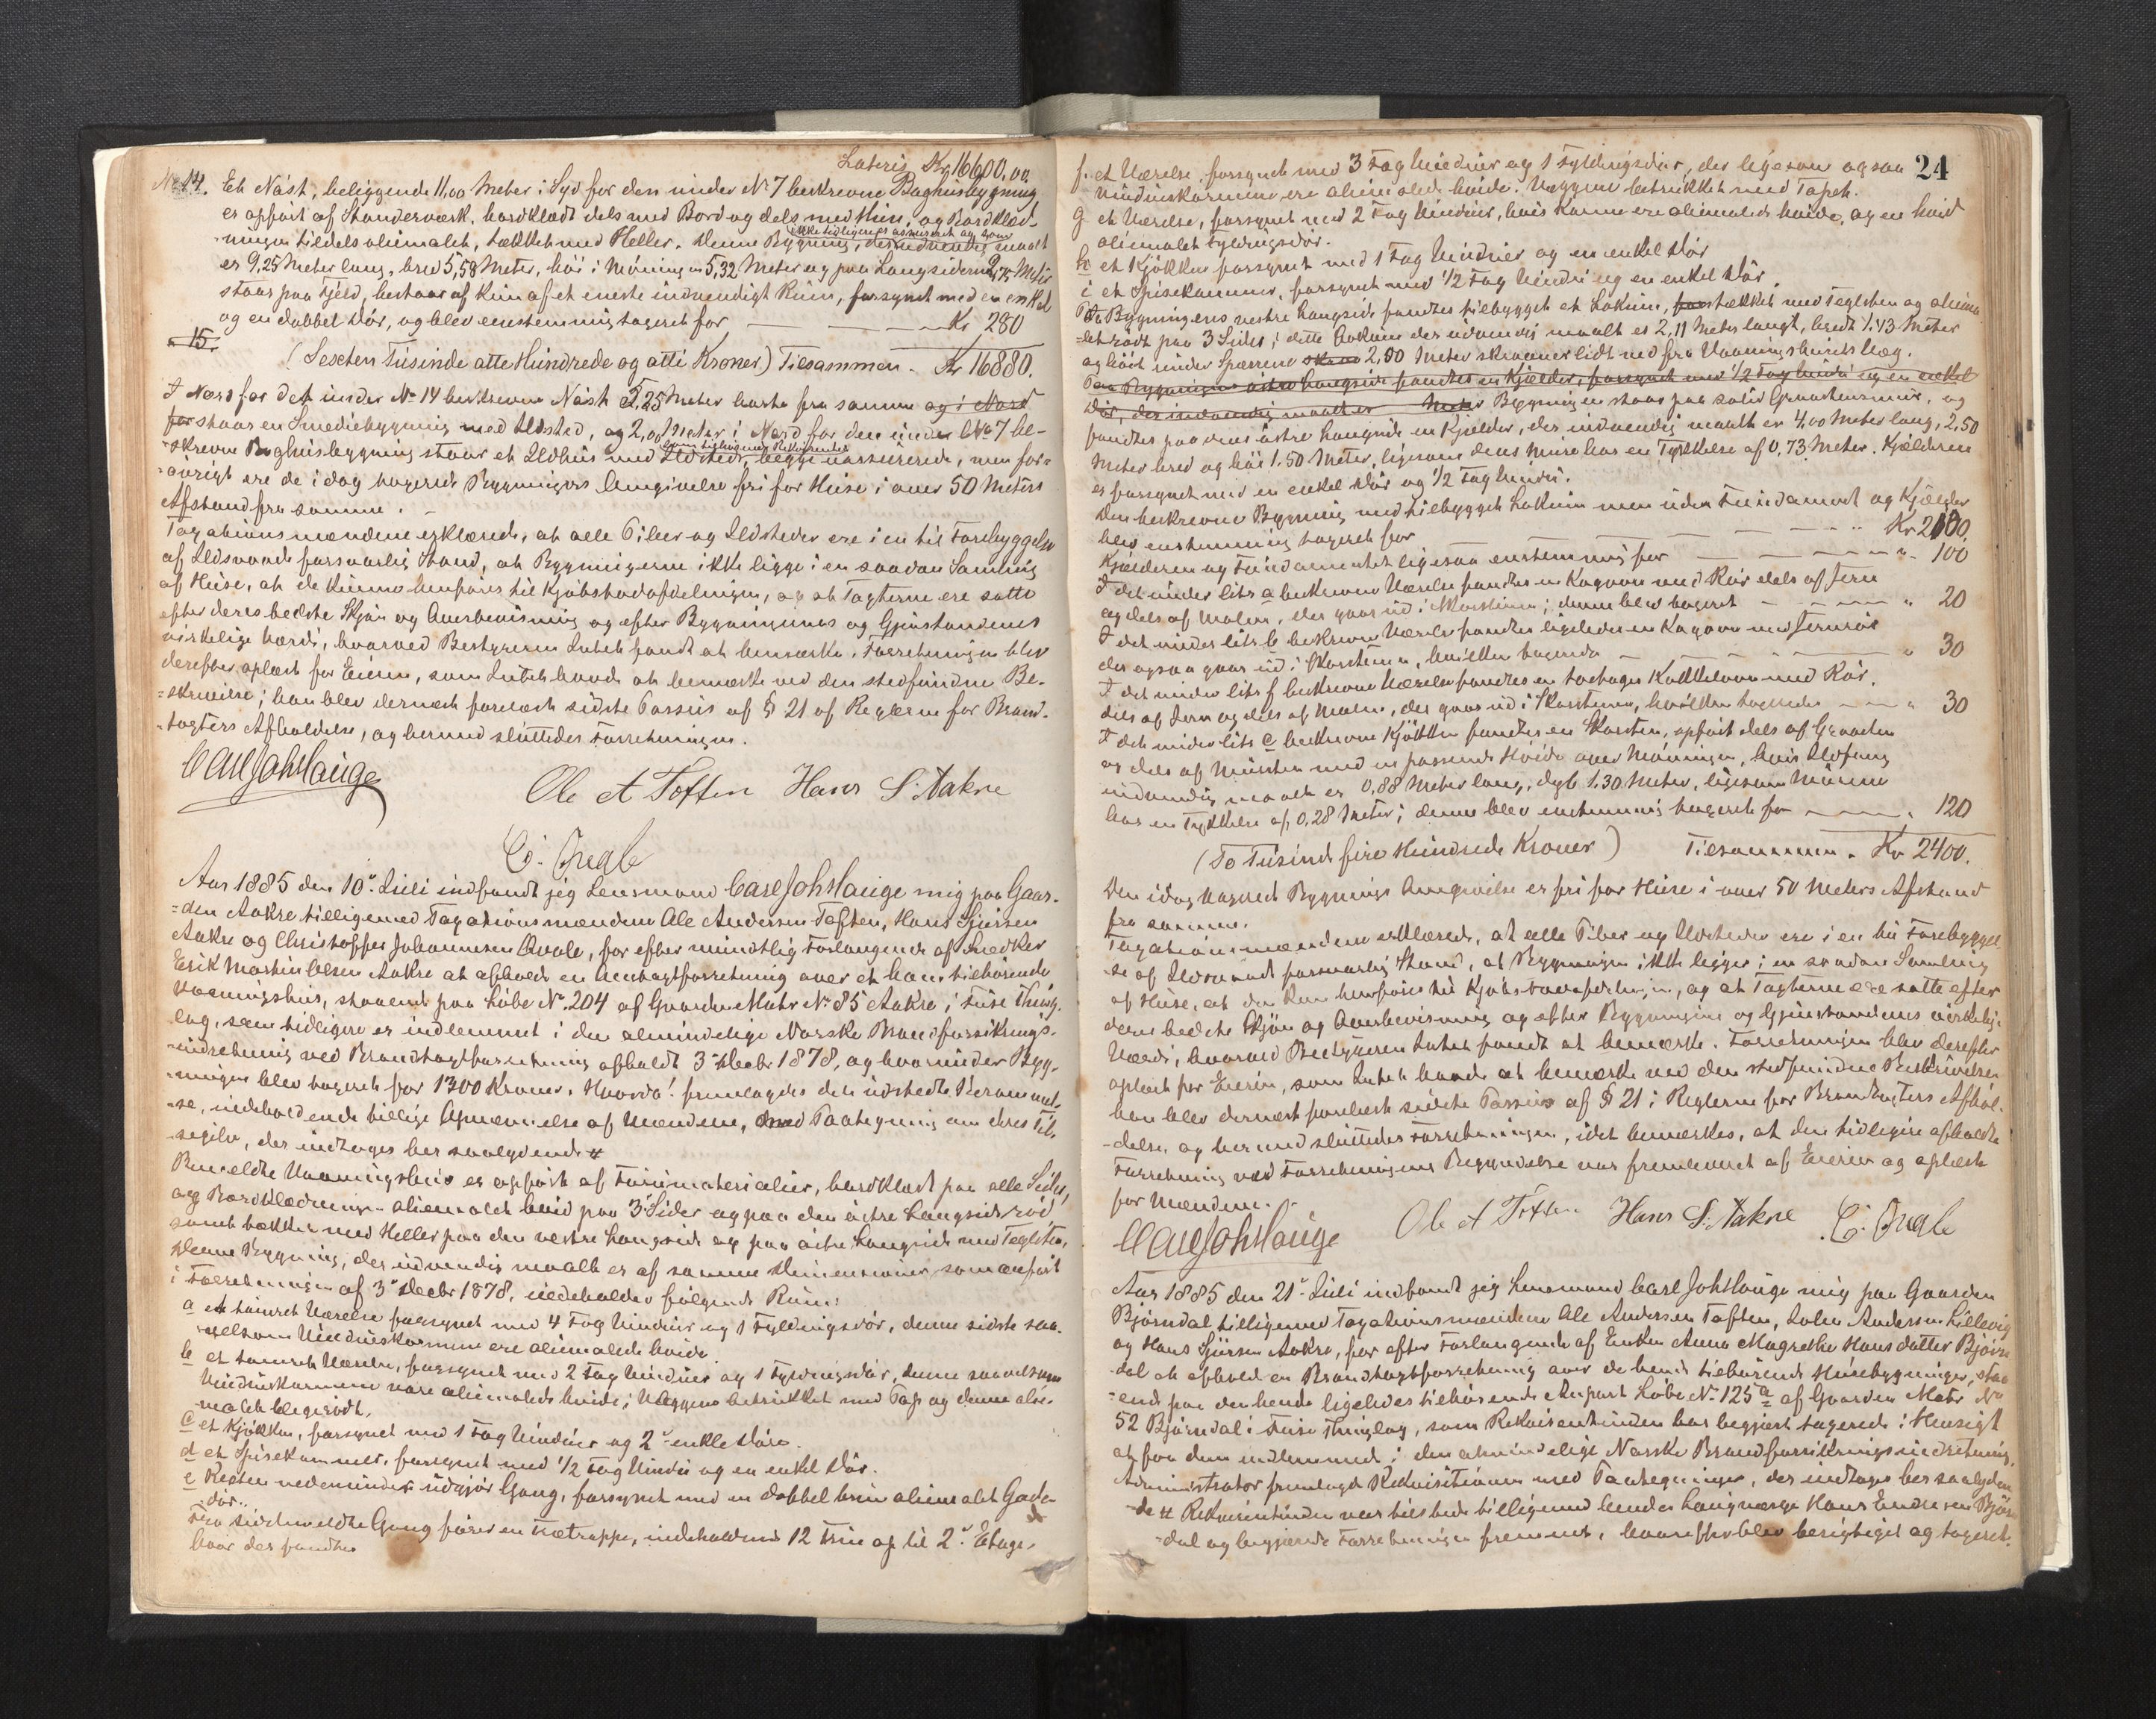 Lateris Kr 16600,00
No 14. Et Nöst, beliggende 11,00 Meter i Syd for den under No 7 beskrevne Baghusbygning
er opfört af Standerværk, bordklædt dels med Bord og dels med Hun, og Bordklæd-
ningen tildels oliemalet, tækket med Heller. Denne Bygning, ikke tidligere assureret og som der udvendig maalt
er 9,25 Meter lang, bred 5,58 Meter, höi i Möningen 5,32 Meter og paa Langsiderne 2,75 Meter
staar paa Fjeld, bestaar af kun af et eneste indvendigt Rum, forsynet med en enkel
og en dobbel Dör, og blev eenstemmig taxeret for — — — — Kr 280
" 15.
(Sexten Tusinde otte Hundrede og otti Kroner) Tilsammen. Kr 16880.
I Nord for det under No 14 beskrevne Nöst 5,25 Meter borte fra samme og i Nord
for staar en Smediebygning med Ildsted, og 2,00 Meter i Nord for den under No 7 be-
skrevne Baghusbygning staar et Ildhus med Ildsted, som tilhörende Rekvirenten begge uassurerede, men for-
övrigt ere de i dag taxerede Bygningers Omgivelse fri for Huse i over 50 Meters
Afstand fra samme. -
Taxationsmændene erklærede, at alle Piber og Ildsteder ere i en til Forebyggelse
af Ildsvaade forsvarlig Stand, at Bygningerne ikke ligge i en saadan Samling
af Huse, at de kunne henföres til Kjöbstadafdelingen, og at Taxterne ere satte
efter deres bedste Skjön og Overbevisning og efter Bygningernes og Gjenstandenes
virkelige Værdi, hvorved Bestyreren Intet fandt at bemærke. Forretningen blev
derefter oplæst for Eieren, som Intet havde at bemærke ved den stedfundne Be-
skrivelse; han blev dernæst forelæst sidste Passus af § 21 af Reglerne for Brand-
taxters Afholdelse, og hermed sluttedes Forretningen.
Carl Joh Hauge
Ole A Toften Hans S. Aakre
C. Qvale
Aar 1885 den 10de Juli indfandt jeg Lensmand Carl Joh Hauge mig paa Gaar-
den Aakre tilligemed Taxationsmændene Ole Andersen Toften, Hans Sjursen
Aakre og Christoffer Johannesen Qvale, for efter mundtlig Forlangende af Snedker
Erik Martin Olsen Aakre at afholde en Omtaxtforretning over et ham tilhörende
Vaaningshus, staaende paa Löbe No 204 af Gaarden Matr No 85 Aakre i Fuse Thing-
lag, som tidligere er indlemmet i den almindelige Norske Brandforsikrings-
indretning ved Brandtaxtforretning afholdt 3die Decbr 1878, og hvorunder Byg-
ningen blev taxeret for 1300 Kroner. Hvorda! fremlagdes den udstedte Sterammel-
se, indeholdende tillige Opnævnelse af Mændene, med Paategning om deres Til-
sigelse, der indtages her saalydende #
Bemeldte Vaaningshus er opfört af Furumaterialier, bordklædt paa alle Sider,
og Bordklædningen oliemalet hvid paa 3 Sider og paa den östre Langside röd
samt tækket med Heller paa den vestre Langside og paa östre Langside med Teglsten,
Denne Bygning, der udvendig maalt er af samme Dimensioner, som anfört
i Forretningen af 3die Decbr 1878, indeholder fölgende Rum:
a et tömret Værelse forsynet med 4 Fag Vinduer og 1 Fyldningsdör, denne sidste saa-
velsom Vindueskarmene ere oliemalede hvide.
b et tömret Værelse, forsynet med 2 Fag Vinduer og 1 Fyldningsdör, denne saavelsom
Vindueskarmene vare oliemalede hvide; Væggene betrukket med Tap og denne olie-
malet blegerödt.
c et Kjökken, forsynet med 1 Fag Vinduer og 2de enkle Döre.
d et Spisekammer, forsynet med 1/2 Fag Vindu og en enkel Dör.
e Resten nedenunder udgjör Gang, forsynet med en dobbel brun oliemalet Gade-
dör..
Fra sidstmeldte Gang förer en Trætrappe, indeholdende 12 Trin op til 2den Etage,
hvor der fandtes
24
f. et Værelse, forsynet med 3 Fag Vinduer og 1 Fyldningsdör, der ligesom ogsaa
Vindueskarmene ere oliemalede hvide. Væggene betrukket med Tapet.
g et Værelse, forsynet med 2 Fag Vinduer, hvis Karme ere oliemalede hvide, og en hvid
oliemalet Fyldningsdör.
h et Kjökken forsynet med 1 Fag Vinduer og en enkel Dör
i et Spisekammer, forsynet med 1/2 Fag Vindu og en enkel Dör.
Paa Bygningens vestre Langside fandtes tilbygget et Lokum, for tækket med Teglsten og oliema-
let rödt paa 3 Sider; dette Lokum der udvendig maalt er 2,11 Meter langt, bredt 1,43 Meter
og höit under Spærrene skraa 2,00 Meter skraaner lidt ned fra Vaaningshusets Væg.
Paa Bygningens östre Langside fandtes en Kjælder, forsynet med 1/2 Fag Vindu og en enkel
Dör, der indvendig maalt er Meter Bygningen staar paa solid Graastensmur, og
fandtes paa dens östre Langside en Kjælder, der indvendig maalt er 4,00 Meter lang, 2,50
Meter bred og höi 1,50 Meter, ligesom dens Mure har en Tykkelse af 0,73 Meter. Kjælderen
er forsynet med en enkel Dör og 1/2 Fag Vindu.
Den beskrevne Bygning med tilbygget Lokum men uden Fundament og Kjælder
blev enstemmig taxeret for — — — Kr 2100.
Kjælderen og Fundamentet ligesaa enstemmig for — — — " 100
I det under litr a beskrevne Værelse fandtes en Kagovn med Rör dels af Jern
og dels af Malm, der gaar ud i Skorstenen; denne blev taxeret — — — " 20
I det under litr b beskrevne Værelse fandtes ligeledes en Kagovn med Jernrör
der ogsaa gaar ud i Skorstenen, hvilken taxeredes — — — " 30
I det under litr f beskrevne Værelse fandtes en toetages Kakkelovn med Rör,
dels af Jern og dels af Malm, der gaar ud i Skorstenen, hvilken taxeredes — — " 30
I det under litr c beskrevne Kjökken fandtes en Skorsten, opfört dels af Graasten
og dels af Mursten med en passende Höide over Möningen, hvis Ildfang
indvendig maalt er 0,88 Meter lang, dyb 1,30 Meter, ligesom Murene
har en Tykkelse af 0,28 Meter; denne blev enstemmig taxeret for — " 120
(To Tusinde fire Hundrede Kroner) Tilsammen. Kr 2400.
Den idag taxerede Bygnings Omgivelse er fri for Huse i over 50 Meters Afstand
fra samme.
Taxationsmændene erklærede, at alle Piber og Ildsteder ere i en til Forebyggel-
se af Ildsvaade forsvarlig Stand, at Bygningen ikke ligger i en saadan Samling
af Huse, at den kan henföres til Kjöbstadafdelingen, og at Taxterne ere satte efter
deres bedste Skjön og Overbevisning og efter Bygningens og Gjenstandenes virkelige
Værdi, hvorved Bestyreren Intet fandt at bemærke. Forretningen blev derefter
oplæst for Eieren, som Intet havde at bemærke ved den stedfundne Beskrivelse
han blev dernæst forelæst sidste Passus af § 21 i Reglerne for Brandtaxters Afhol-
delse, og hermed sluttedes Forretningen, idet bemærkes, at den tidligere afholdte
Forretning ved Forretningens Begyndelse var fremleveret af Eieren og oplæst
for Mændene.
Carl Joh Hauge Ole A Toften Hans S. Aakre C. Qvale
Aar 1885 den 21de Juli indfandt jeg Lensmand Carl Joh Hauge mig paa Gaarden
Björndal tilligemed Taxationsmændene Ole Andersen Toften, Andersen Lillevig
og Hans Sjursen Aakre, for efter Forlangende af Enken Anna Magrethe Hansdatter Björn-
dal at afholde en Brandtaxtforretning over de hende tilhörende Husebygninger, sta-
ende paa den hende ligeledes tilhörende Anpart Löbe No 125a af Gaarden Matr No
52 Björndal i Fuse Thinglag, som Rekvirentinden har begjært taxerede i Hensigt
at faa dem indlemmet i den almindelige Norske Brandforsikringsindretning.
Administrator fremlagde Rekvisitionen med Paategninger, der indtages her saalyden-
de # Rekvirentinden var tilstede tilligemed hendes Laugværge Hans Endresen Björn-
dal og begjærede Forretningen fremmet, hvorefter blev besigtiget og taxeret.